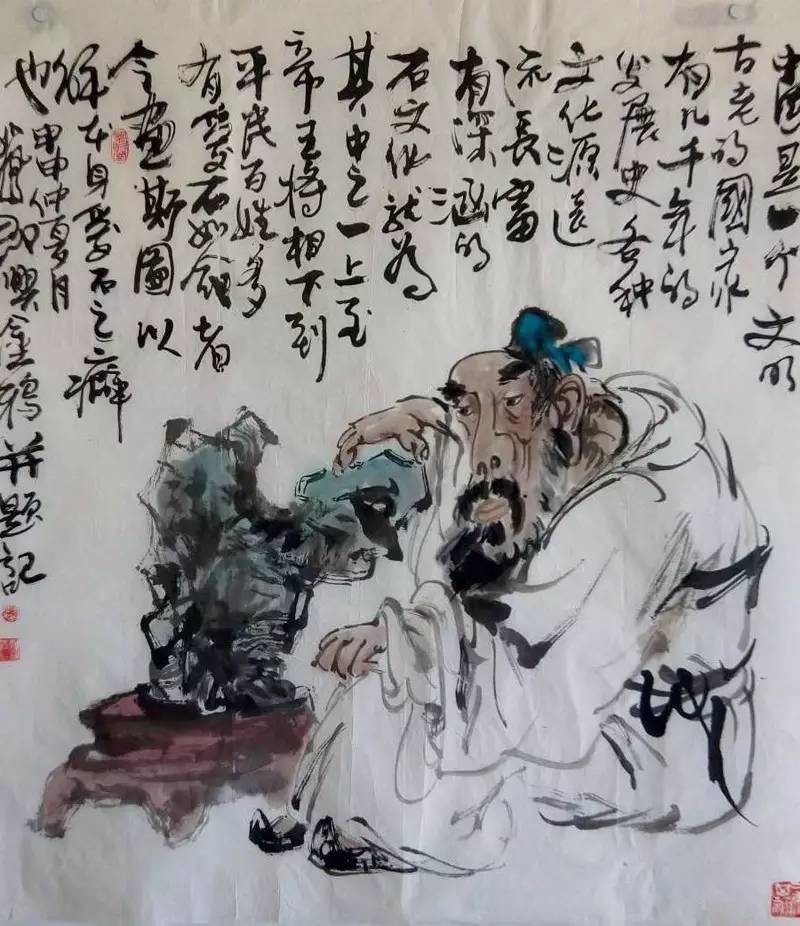 中国是一个文明
古老的國家
有几千年的
发展史各种
文化源远
流長富
有深涵的
石文化就為
其中之一上至
帝王将相下到
平民百姓多
有愛石如命者
今画斯圖以
解本身愛石之癖
也甲申仲夏月
并题記